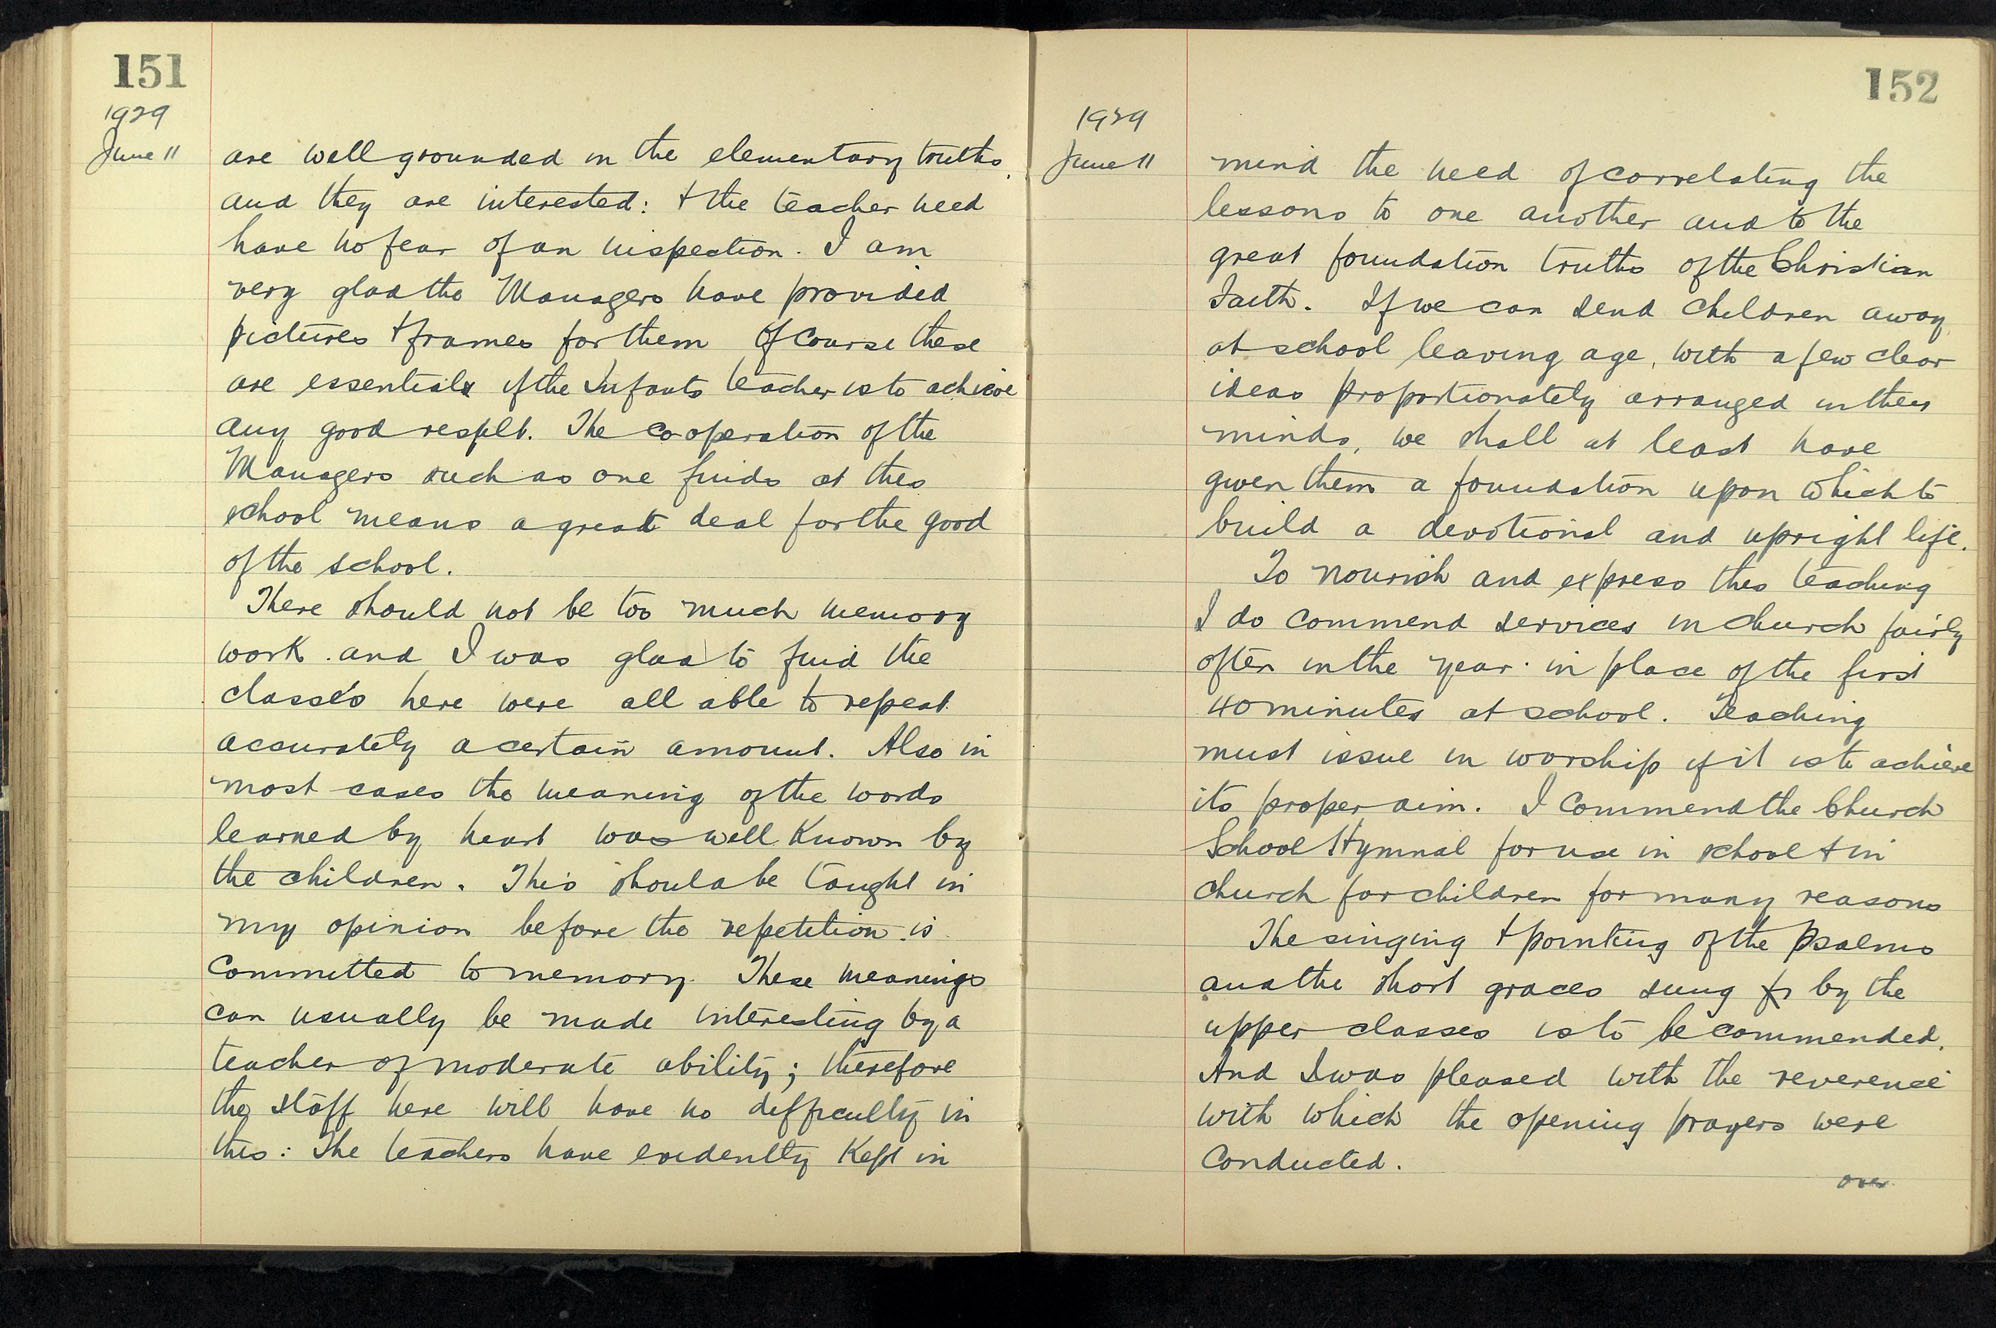 151
1929
June 11
are well grounded in the elementary truths,
and they are interested: + the teacher need
have no fear of an inspection. I am
very glad the Managers have provided
pictures + frames for them Of course these
are essentials if the Infants teacher is to achieve
any good result. The co-operation of the
Managers such as one finds at this
school means a great deal for the good
of the school.
There should not be too much memory
work. and I was glad to find the
classes here were all able to repeat
accurately a certain amount. Also in
most cases the meaning of the words
learned by heart was well known by
the children. This should be taught in
my opinion before the repetition is
committed to memory. These meanings
can usually be made interesting by a
teacher of moderate ability; therefore
the staff here will have no difficulty in
this: The teachers have evidently kept in
152
1929
June 11
mind the need of correlating the
lessons to one another and to the
great foundation truths of the Christian
Faith. If we can send children away
at school leaving age, with a few clear
ideas proportionately arranged in their
minds, we shall at least have
given them a foundation upon which to
build a devotional and upright life.
To nourish and express this teaching
I do commend services in church fairly
often in the year. in place of the first
40 minutes at school. Teaching
must issue in worship if it is to achieve
its proper aim. I commend the Church
School Hymnal for use in school + in
church for children for many reasons
The singing + pointing of the Psalms
and the short graces sung by the
upper classes is to be commended.
And I was pleased with the reverence
with which the opening prayers were
conducted.
over